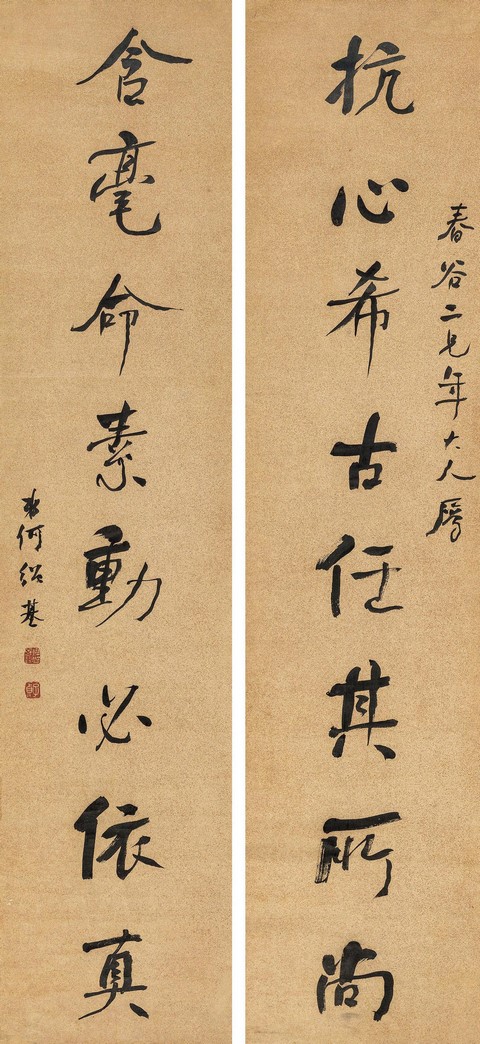 春谷二兄年大人屬
抗心希古任其所尚
含毫命素動必依真
弟何紹基